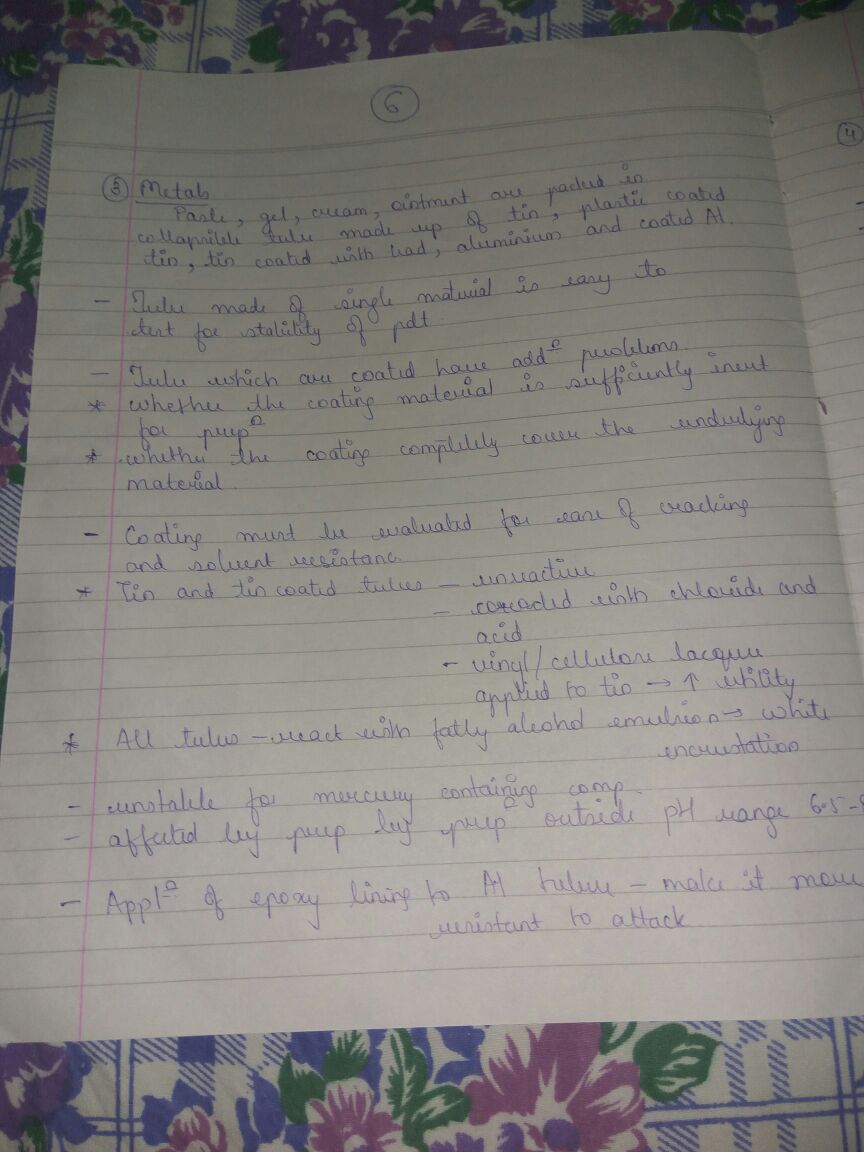 6
③ Metals
Paste, gel, cream, ointment are packed in
collapsible tube made up of tin, plastic coated
tin, tin coated with lead, aluminium and coated Al.
- Tube made of single material is easy to
test for stability of pdt.
- Tube which are coated have addⁿ problems
* whether the coating material is sufficiently inert
for prepⁿ
* whether the coating completely cover the underlying
material.
- Coating must be evaluated for ease of cracking
and solvent resistanc
* Tin and tin coated tubes - unreactive
- corroded with chloride and
acid
- vinyl/cellulose lacquer
applied to tin → ↑ utility
* All tubes - react with fatty alcohol emulsion → white
encrustation
- unstable for mercury containing comp.
- affected by prep by prepⁿ outside pH range 6.5-
- Applⁿ of epoxy lining to Al tube - make it more
resistant to attack
4